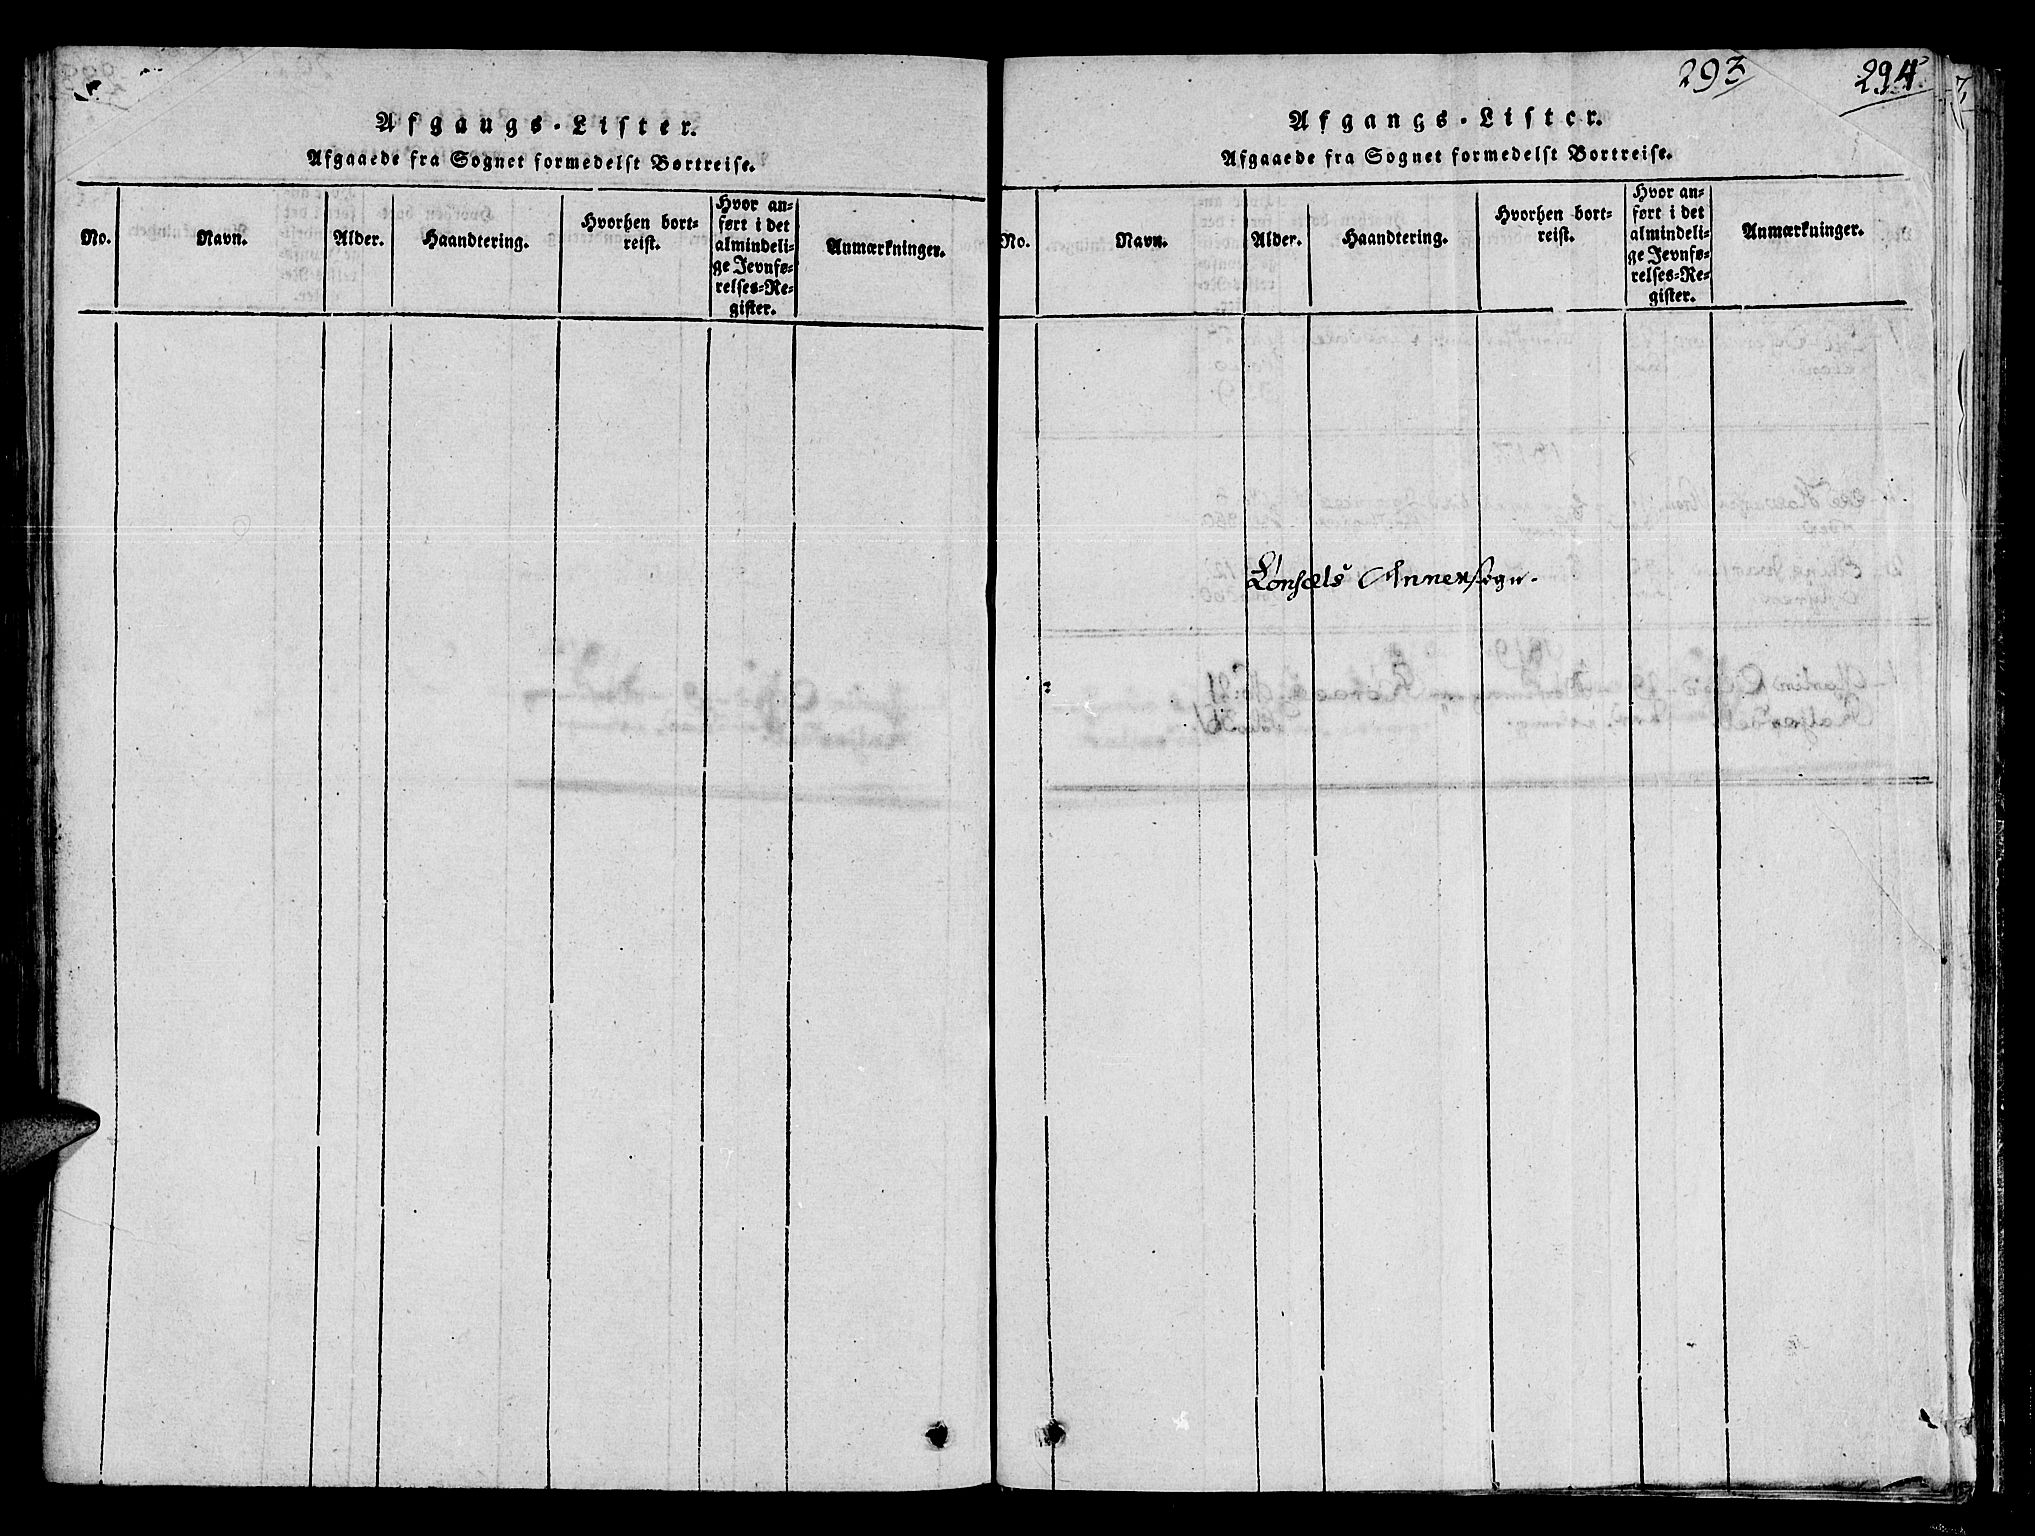 Afgangs-Lister.
Afgaaede fra Sognet formedelst Bortreise.
No.
Navn.
Alder.
Haandtering.
Hvorhen bort=
reist.
Hvor an=
ført i det
almindeli=
ge Jevnfø=
relses=Re=
gister.
Anmærkninger.
293
294
Afgangs-Lister.
Afgaaede fra Sognet formedelst Bortreise.
No.
Navn.
Alder.
Haandtering.
Hvorhen bort=
reist.
Hvor an=
ført i det
almindeli=
ge Jevnfø=
relses=Re=
gister.
Anmærkninger.
Annexsogn.